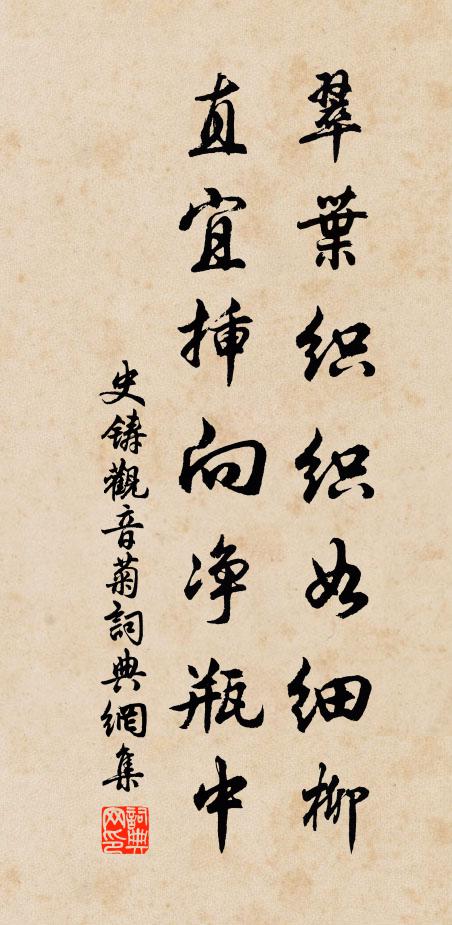 翠葉织织如细柳
直宜挿向净瓶中
史铸觀音菊詞典網集
詞典网印